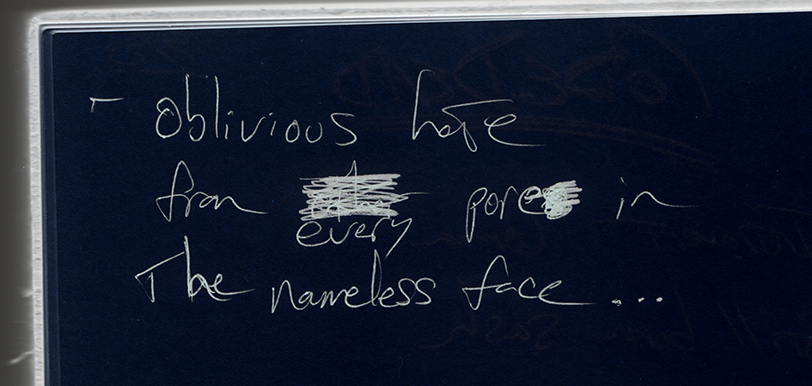 - Oblivious hate
from every pore in
The nameless face ...